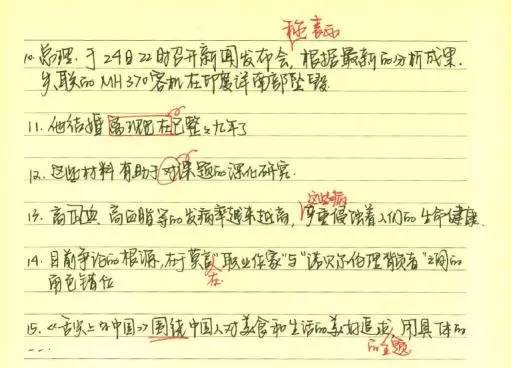 称,表示
10. 总理.于24日22时召开新闻发布会,根据最新的分析成果.
失联的MH370客机在印度洋南部坠毁.
11. 他结婚离现在已整整九年了
12. 这些材料有助于对课题的深化研究.
这些病
13. 高血血、高血脂等的发病率越来越高,严重侵蚀着人们的生命健康.
14. 目前争论的根源,在于莫言"职业作家"与"诺贝尔伦理背负者"之间的
在
角色错位
15.《舌尖上的中国》围绕中国人对美食和生活的美好追求,用具体的
的主题
....